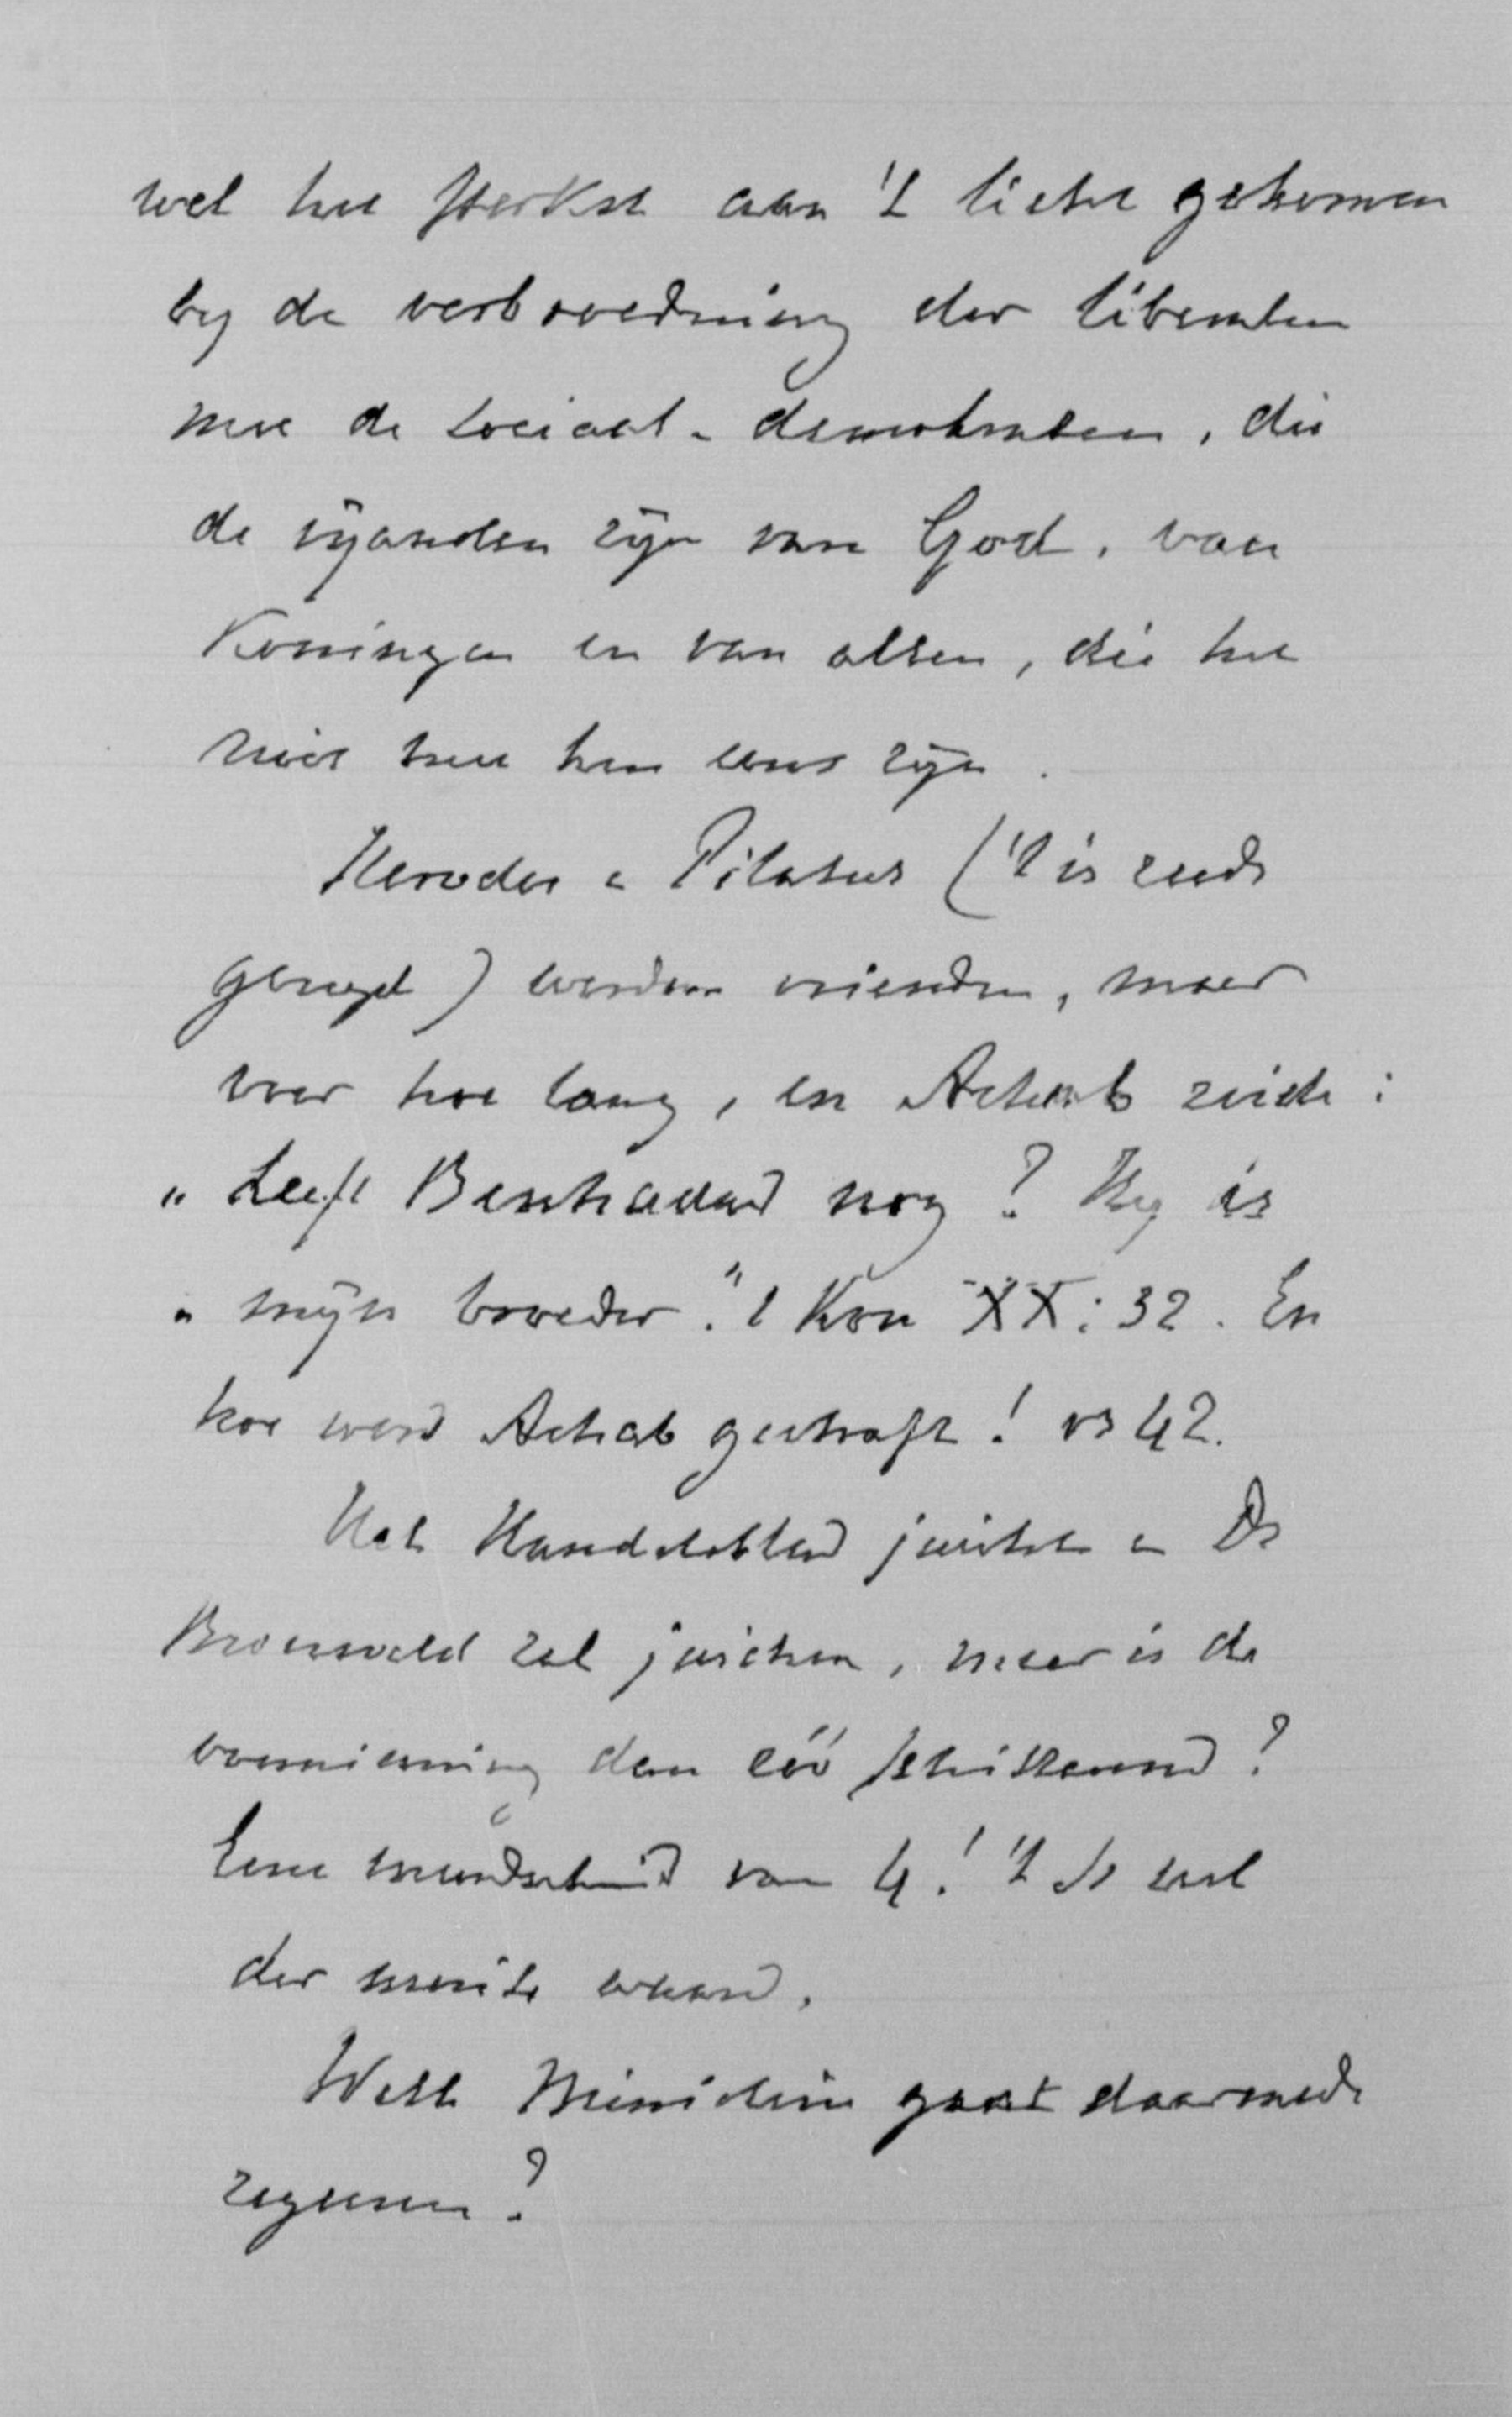 wel het sterkst aan 't licht gekomen
by de verbroedering der liberalen
met de sociaal-democraten, die
de vyanden zyn van God, van
Koningen en van allen, die het
niet met hen eens zyn.
Herodes & Pilatus ('t is reeds
gezegd) werden vrienden, maar
voor hoe lang, en Achab zeide:
„Leeft Benhadad nog? Hy is
„myn broeder." 1 Kon XX:32. En
hoe werd Achab gestraft! vs 42.
Het Handelsblad juicht & Dr
Bronsveld zal juichen, maar is de
overwinning dan zóó schitterend?
Eene meerderheid van 4! 't Is wel
der moeite waard.
Welk Ministerie gaat daarmede
regeeren?